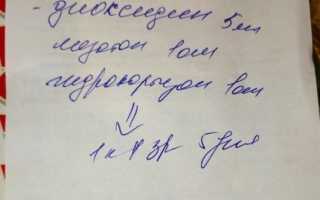 - диоксидин 5мл
мезатон 1амп
гидрокортизон 1амп
1к 3р 5дней